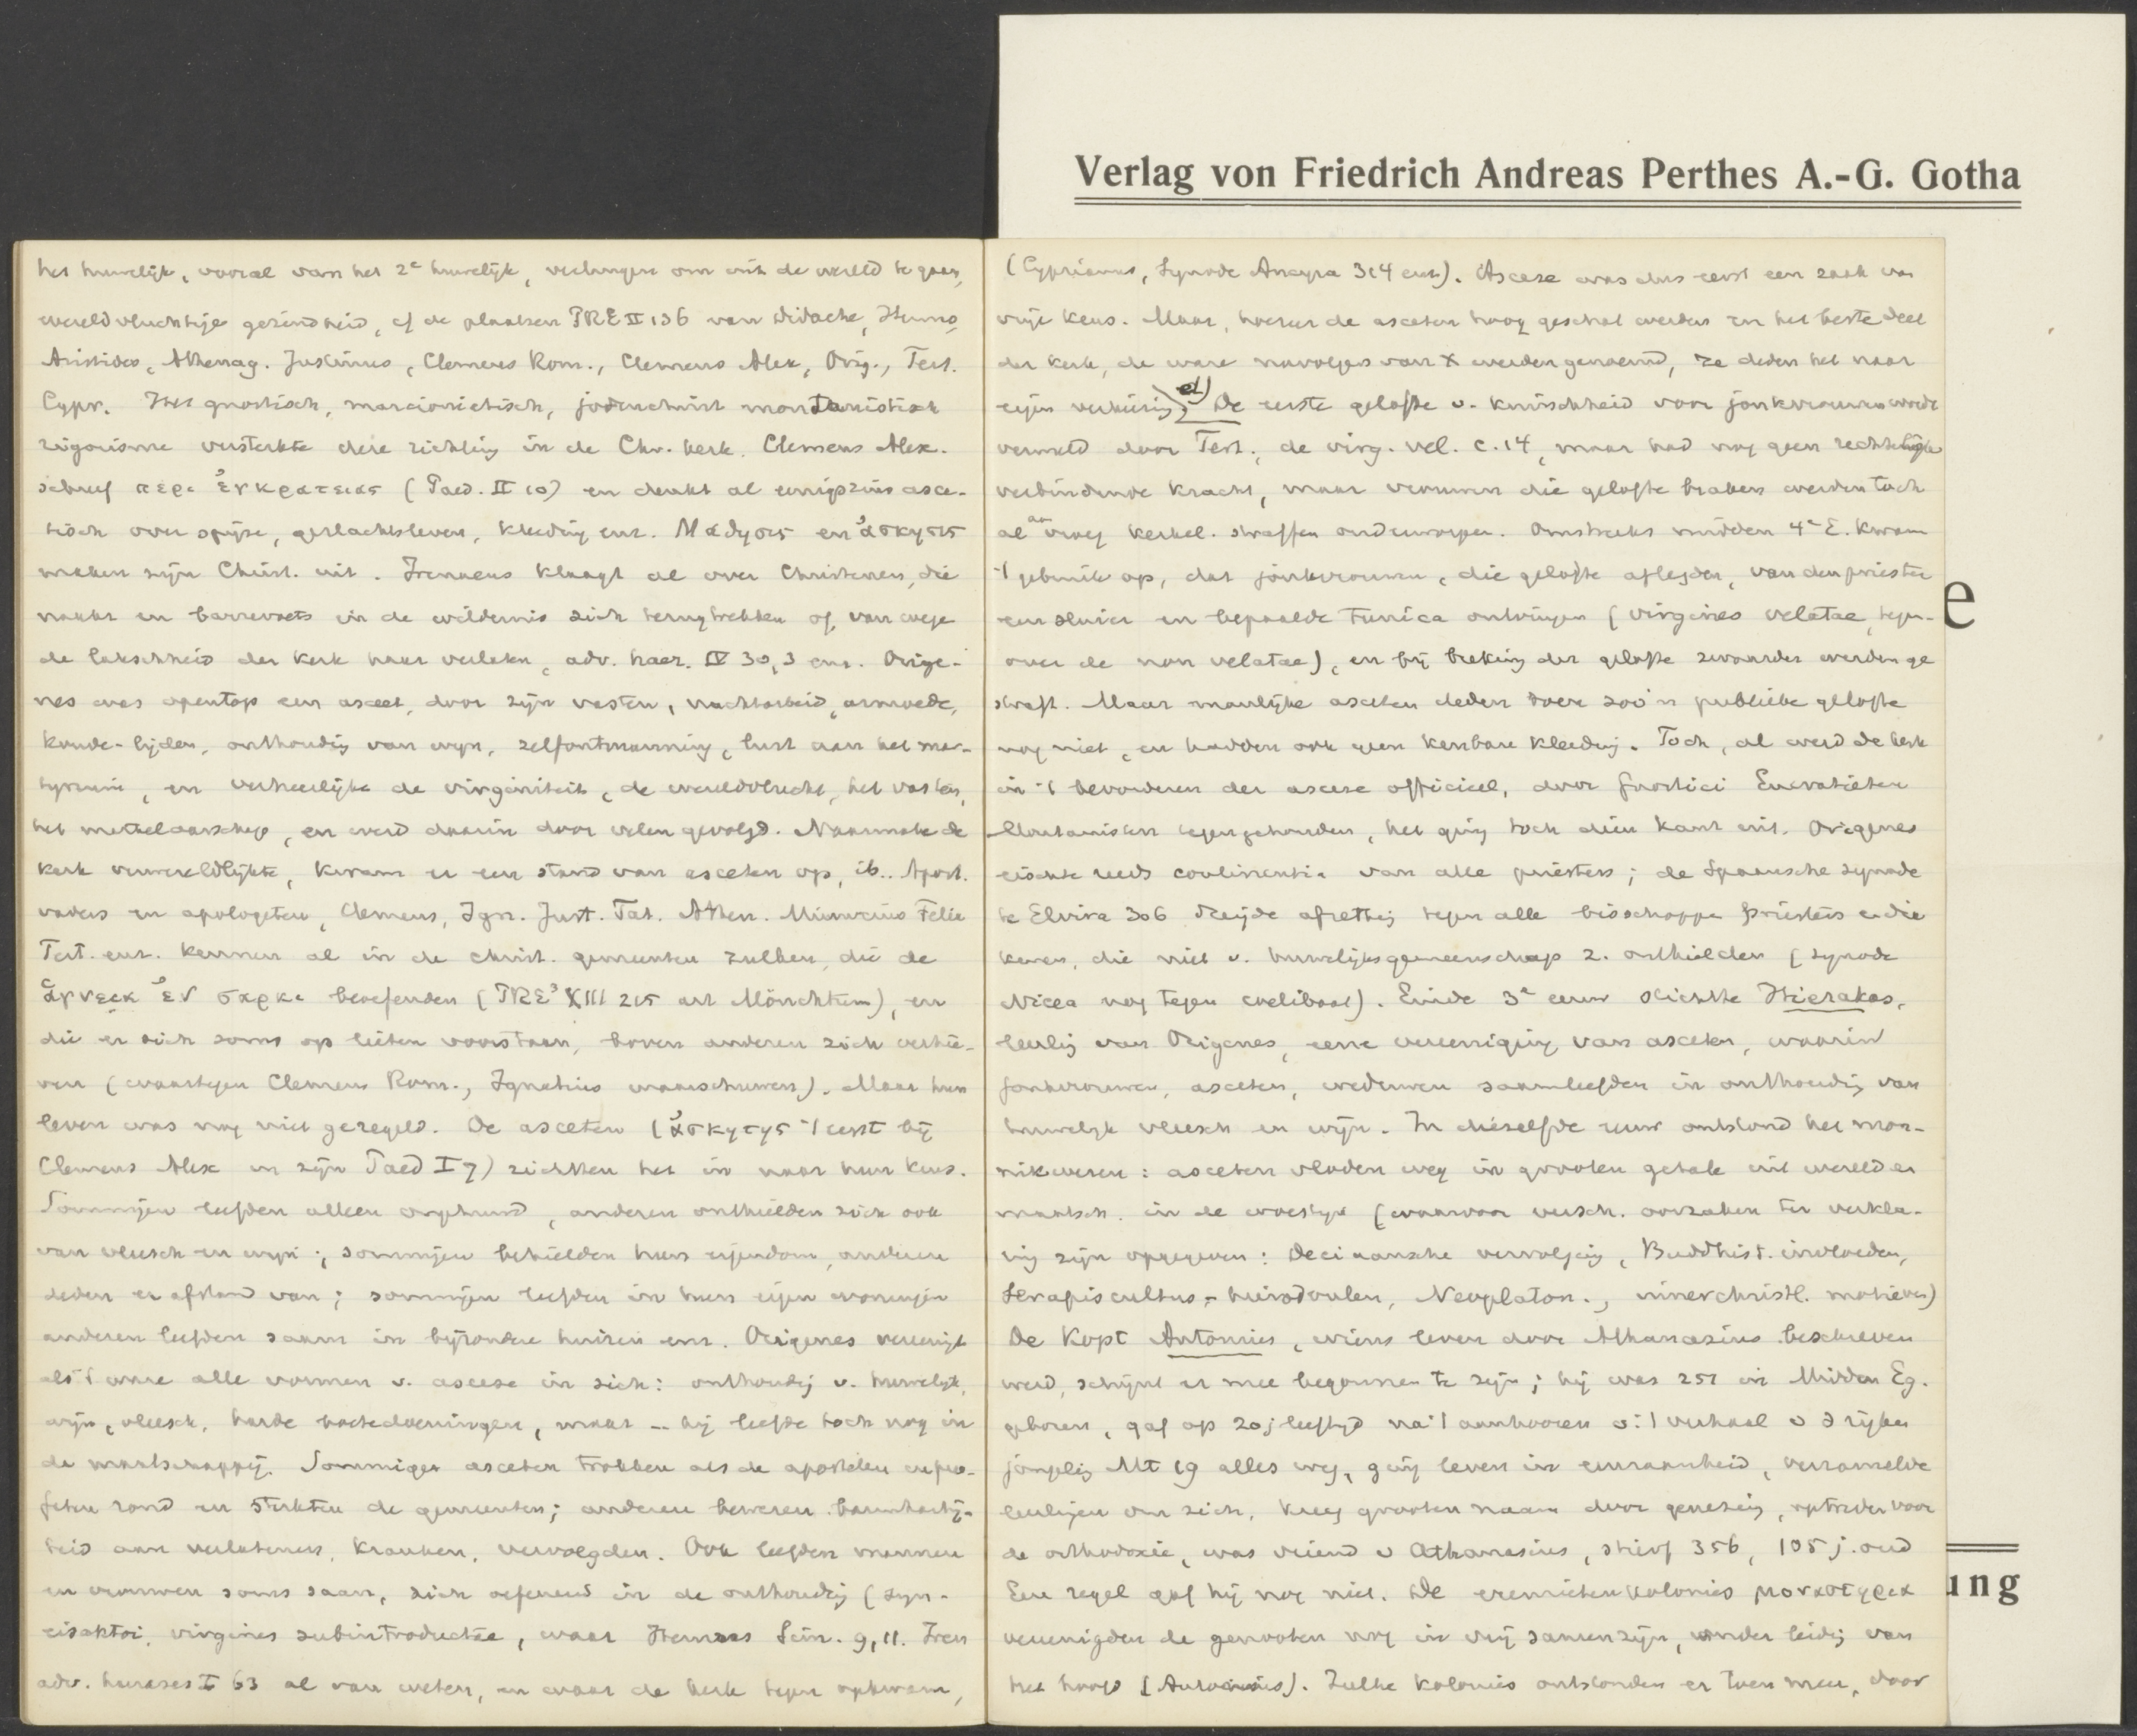 Verlag von Friedrich Andreas Perthes A.-G. Gotha
het huwelijk, vooral van het 2e huwelijk, verlangen om uit de wereld te gaan,
wereldvluchtige gezindheid, cf de plaatsen PRE II 136 van Didache, Hermas,
Aristides, Athenag. Justinus, Clemens Rom., Clemens Alex, Orig., Tert.
Cypr. Het gnostisch, marcionietisch, joodenchrist montanistisch
rigorisme versterkte deze richting in de Chr. kerk. Clemens Alex.
schreef περι ἐγκρατειας (Paed. II 10) en denkt al eenigszins asce-
tisch over spijze, geslachtsleven, kleeding enz. Μαθησις en ἀσκησις
maken zijn Christ. uit. Irenaeus klaagt al over Christenen, die
naakt en barrevoets in de wildernis zich terugtrekken of, van wege
de laksheid der kerk haar verlaten, adv. haer. IV 30,3 enz. Orige-
nes was opentop een asceet, door zijn vasten, nachtarbeid, armoede,
koude-lijden, onthouding van wijn, zelfontmanning, lust aan het mar-
tyrium, en verheerlijkte de virginiteit, de wereldvlucht, het vasten,
het metselaarschap, en werd daarin door velen gevolgd. Naarmate de
kerk verwereldlijkte, kwam er een stand van asceten op, ib.. Apost.
vaders en apologeten, Clemens, Ign. Just. Tat. Athen. Minucius Felix
Tert. enz. kennen al in de christ. gemeenten zulken, die de
ἁγνεια ἐν σαρκι beoefenden (PRE³ XIII 215 art Mönchtum), en
die er zich soms op lieten voorstaan, boven anderen zich verhie-
ven (waartegen Clemens Rom., Ignatius waarschuwen). Maar hun
leven was nog niet geregeld. De asceten (ἀσκητης 't eerst bij
Clemens Alex in zijn Paed I 7) richtten het in naar hun keus.
Sommigen leefden alleen ongehuwd, anderen onthielden zich ook
van vleesch en wijn; sommigen behielden hun eigendom, anderen
deden er afstand van; sommigen leefden in hun eigen woningen
anderen leefden saam in bijzondere huizen enz. Origenes vereenigt
als 't ware alle vormen v. ascese in zich: onthouding v. huwelijk,
wijn, vleesch, harde boetedoeningen, maar -- hij leefde toch nog in
de maatschappij. Sommige asceten trokken als de apostelen en pro-
feten rond en sterkten de gemeenten; anderen bewezen barmhartig-
heid aan verlatenen, kranken, vervolgden. Ook leefden mannen
en vrouwen soms saam, zich oefenend in de onthouding (syn-
eisaktoi, virgines subintroductae, waar Hermas Sim. 9,11. Iren
adv. haereses I 63 al van weten, en waar de kerk tegen opkwam,
(Cyprianus, Synode Ancyra 314 enz). Ascese was dus eerst een zaak van
vrije keus. Maar, hoezeer de asceten hoog geschat werden en het beste deel
der kerk, de ware navolgers van X werden genoemd, ze deden het naar
eigen verkiezing. De eerste gelofte v. kuischheid voor jonkvrouwen wordt
vermeld door Tert., de virg. vel. c. 14, maar had nog geen rechtelijke
verbindende kracht, maar vrouwen die gelofte braken werden toch
al vroeg aan kerkel. straffen onderworpen. Omstreeks midden 4e E. kwam
't gebruik op, dat jonkvrouwen, die gelofte aflegden, van den priester
een sluier en bepaalde tunica ontvingen (virgines velatae, tegen-
over de non velatae), en bij breking der gelofte zwaarder werden ge
straft. Maar manlijke asceten deden zoo'n publieke gelofte
nog niet, en hadden ook geen kenbare kleeding. Toch, al werd de kerk
in 't bevorderen der ascese officieel, door Gnostici Encratieten
Montanisten tegengehouden, het ging toch dien kant uit. Origenes
eischte reeds continentia van alle priesters; de Spaansche synode
te Elvira 306 dreigde afzetting tegen alle bisschoppen priesters en dia
kenen, die niet v. huwelijksgemeenschap z. onthielden (synode
Nicea nog tegen coelibaat). Einde 3e eeuw stichtte Hierakas,
leerling van Origenes, eene vereeniging van asceten, waarin
jonkvrouwen, asceten, weduwen saamleefden in onthouding van
huwelijk vleesch en wijn. In diezelfde eeuw ontstond het mon-
nikwezen: asceten vloden weg in grooten getale uit wereld en
maatsch. in de woestijn (waarvoor versch. oorzaken ter verkla-
ring zijn opgegeven: Deciaansche vervolging, Buddhist. invloeden,
Serapiscultus, hierodoulen, Neoplaton., innerchristl. motieven)
De Kopt Antonius, wiens leven door Athanasius beschreven
werd, schijnt er mee begonnen te zijn; hij was 251 in Midden Eg.
geboren, gaf op 20j leeftijd na 't aanhooren v. 't verhaal v d rijken
jongeling Mt 19 alles weg, ging leven in eenzaamheid, verzamelde
leerlingen om zich, kreeg grooten naam door genezing, optreden voor
de orthodoxie, was vriend v Athanasius, stierf 356, 105 j. oud
Een regel gaf hij nog niet. De eremietenkolonies μοναστηρια
vereenigden de genooten nog in vrij samenzijn, onder leiding van
het hoofd (Antonius). Zulke kolonies ontstonden er toen meer, door
e
ung